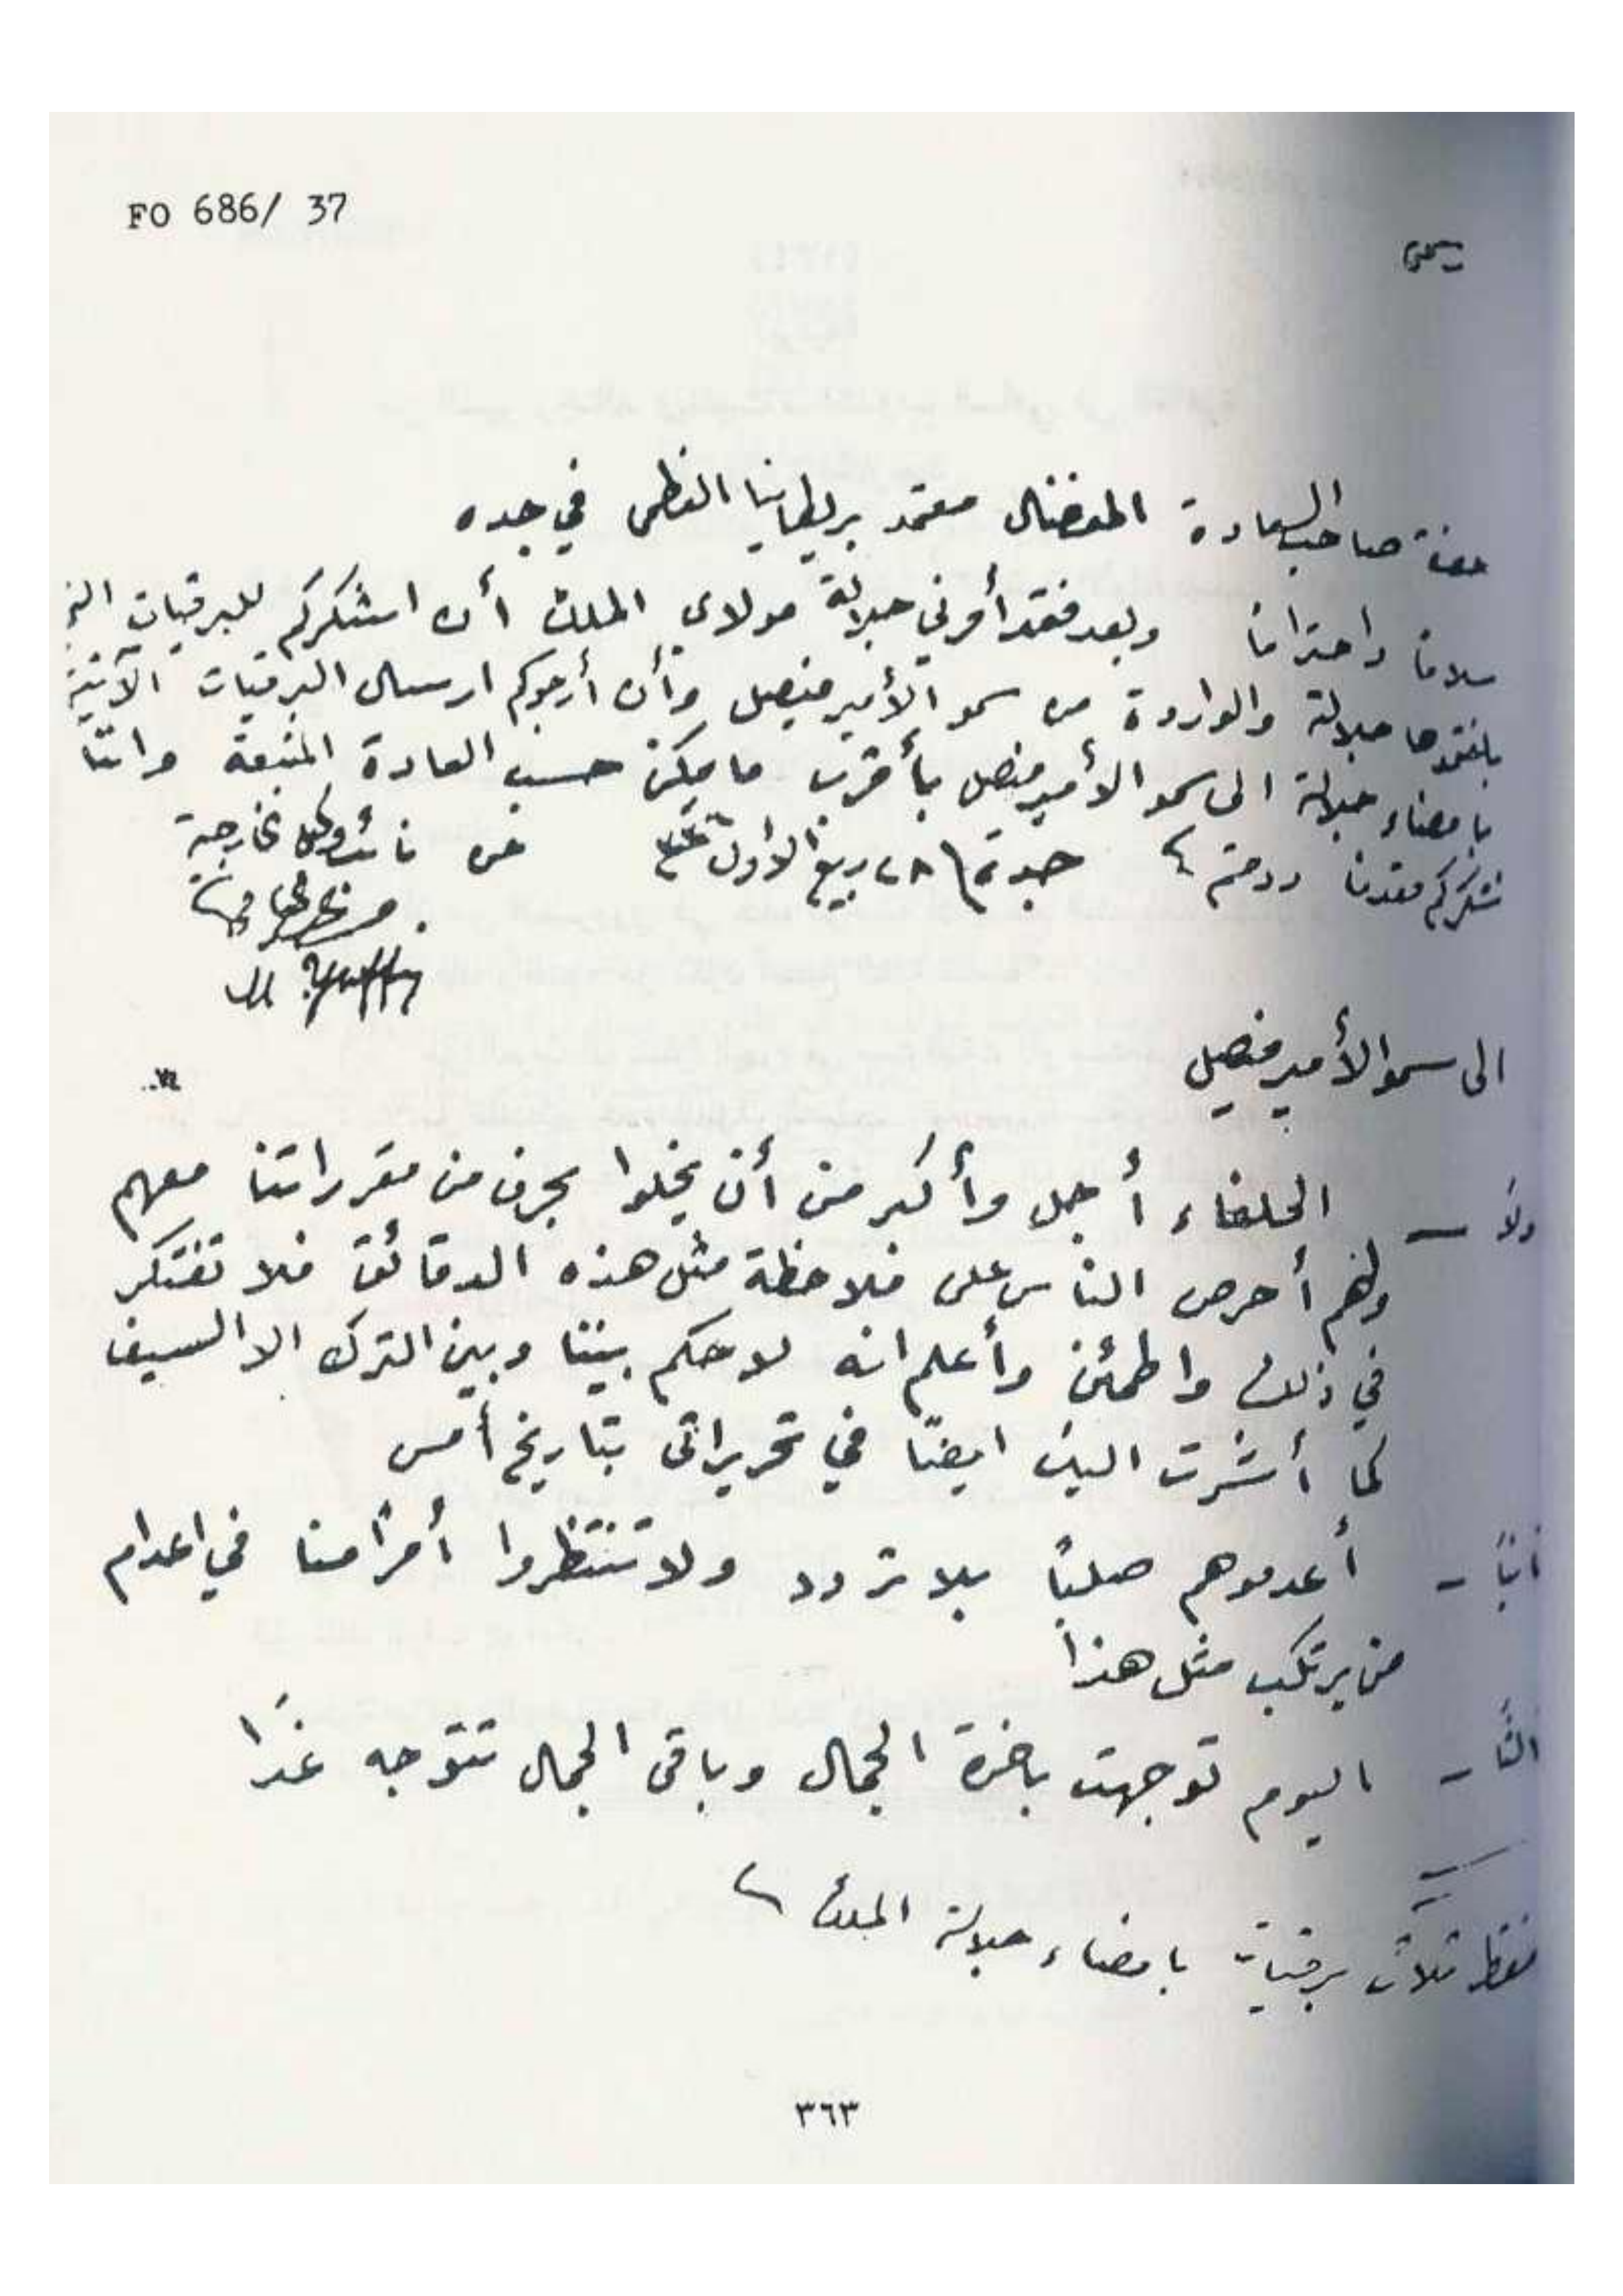 FO 686/ 37
حضرة صاحب السعادة المفضال معتمد بريطانيا العظمى في جده
سلاماً واحتراماً وبعد فقد أمرني جلالة مولاي الملك أن اشكركم للبرقيات التي
بلغتموها جلالته والواردة من سمو الأمير فيصل وأن أرجوكم ارسال البرقيات الآتية
بامضاء جلالته الى سمو الأمير فيصل بأقرب ما يمكن حسب العادة المتبعة وانا
نشكركم مقدماً ودمتم جدة ٢٨ ربيع الأول ٣٣٦ عن نائب وكيل الخارجية
الى سمو الأمير فيصل
ولاً - الحلفاء أجل وأكبر من أن يخلوا بحرف من مقرراتنا معهم
وانهم أحرص الناس على ملاحظة مثل هذه الدقائق فلا تفتكر
في ذلك واطمئن وأعلم انه لا حكم بيننا وبين الترك الا السيف
كما أشرت اليك ايضاً في تحريراتى بتاريخ أمس
انياً - أعدموهم صلباً بلا تردد ولا تنتظروا أمراً منا في اعدام
من يرتكب مثل هذا
الثاً - اليوم توجهت باخرة الجمال وباقى الجمال تتوجه غداً
فقط ثلاث برقيات بامضاء جلالة الملك
٣٦٣